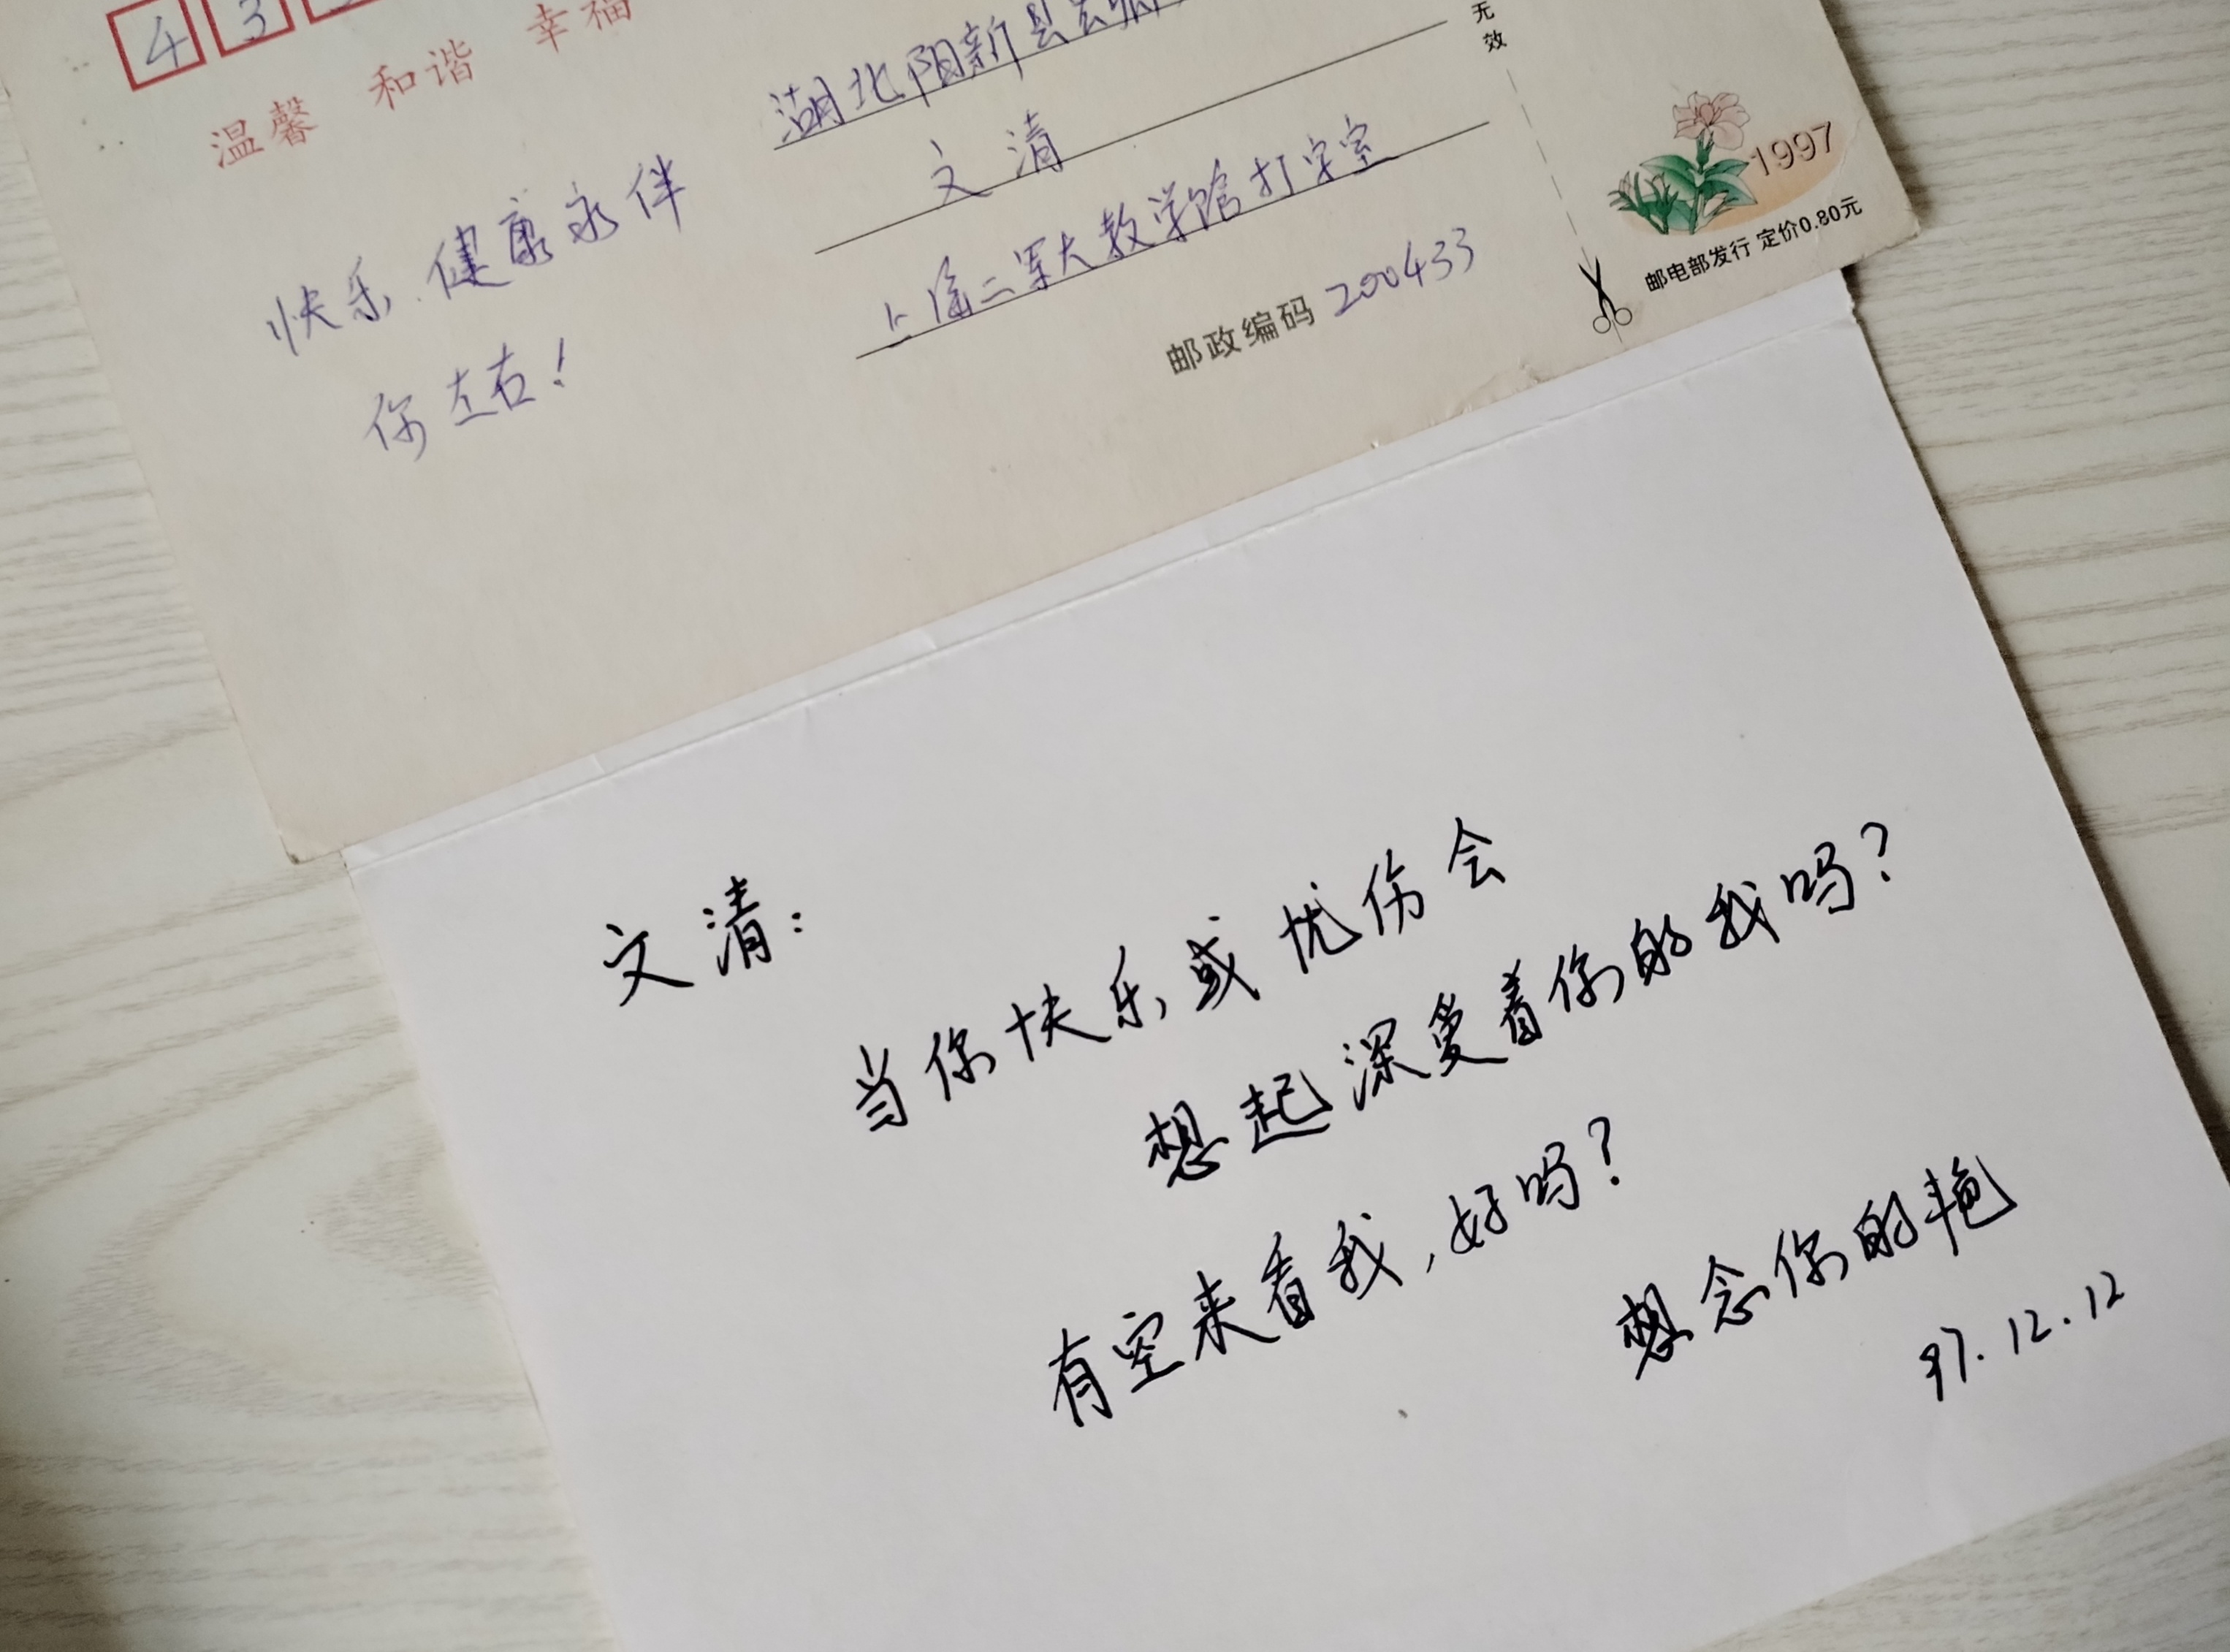 4 3
温馨 和谐 幸福
湖北阳新县
文清
上海二军大教学馆打字室
邮政编码 200433
快乐、健康永伴
你左右！
无效
1997
邮电部发行 定价0.80元
文清：
当你快乐或忧伤会
想起深爱着你的我吗？
有空来看我，好吗？
想念你的艳
97.12.12